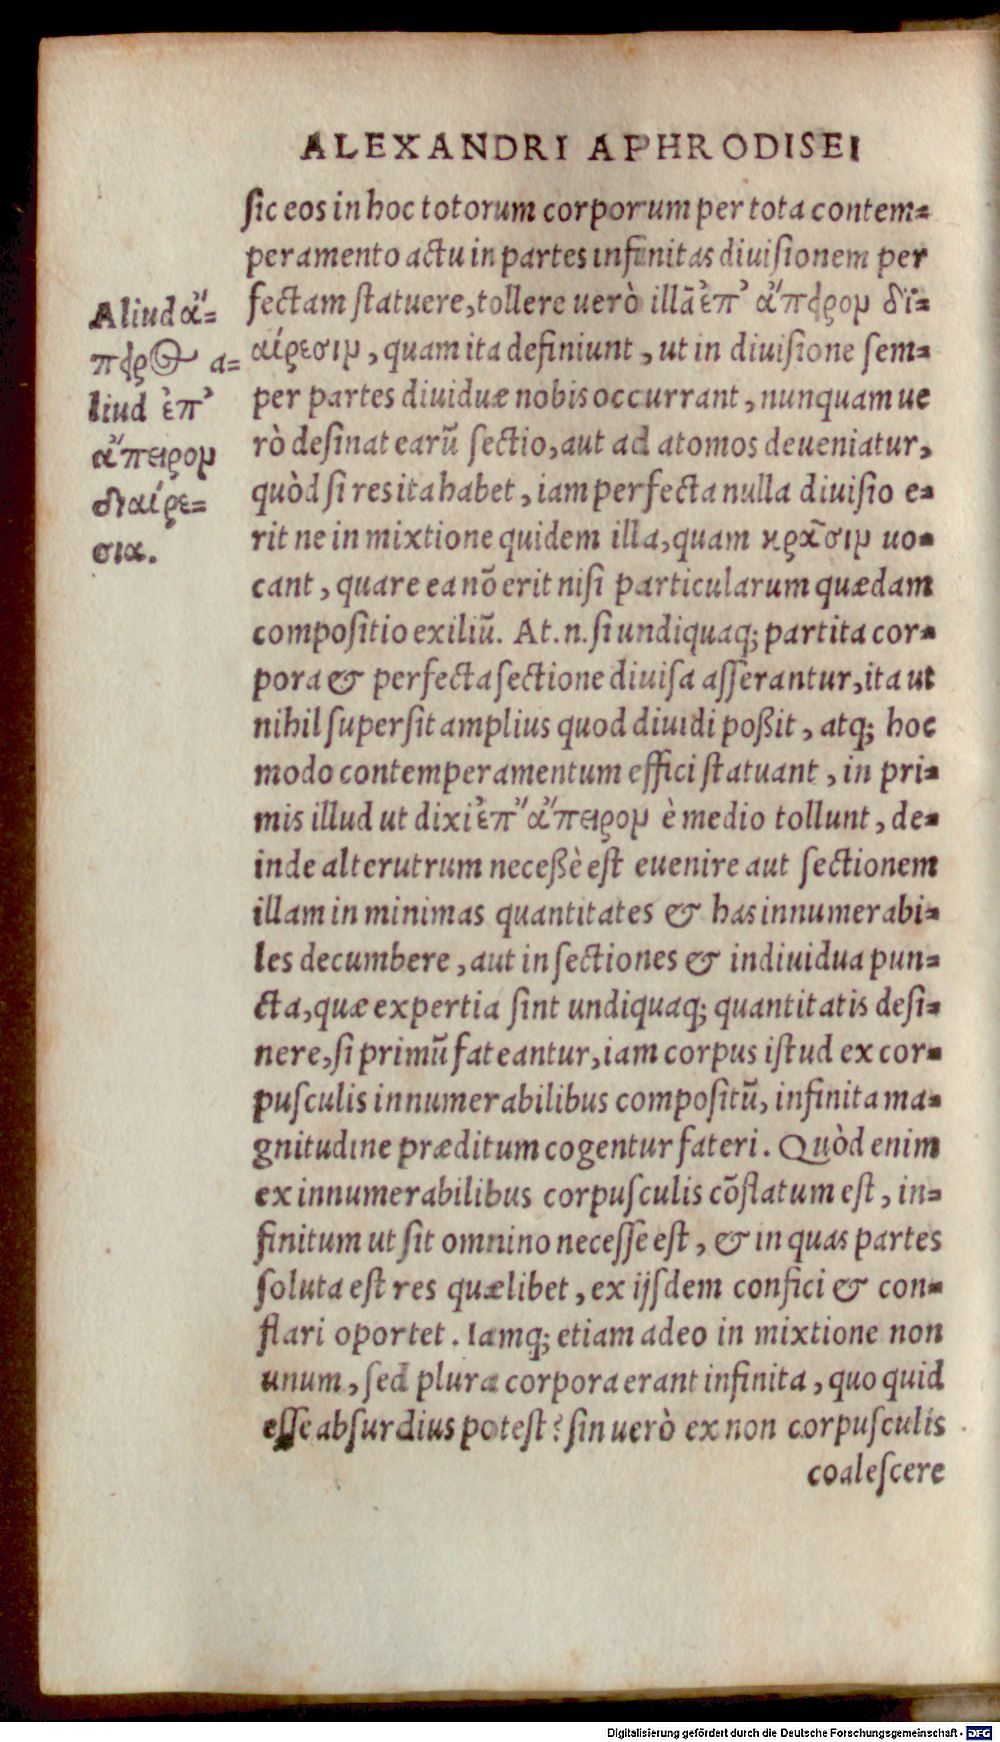 ALEXANDRI APHRODISEI
sic eos in hoc totorum corporum per tota contem=
peramento actu in partes infinitas diuisionem per
fectam statuere, tollere uerò illã ἐπ' ἄπειρομ δι=
αίρεσιμ, quam ita definiunt, ut in diuisione sem=
per partes diuiduæ nobis occurrant, nunquam ue
rò desinat earũ sectio, aut ad atomos deueniatur,
quòd si res ita habet, iam perfecta nulla diuisio e=
rit ne in mixtione quidem illa, quam κρᾶσιμ uo=
cant, quare ea nõ erit nisi particularum quædam
compositio exiliũ. At.n. si undiquaq; partita cor=
pora & perfecta sectione diuisa asserantur, ita ut
nihil supersit amplius quod diuidi poßit, atq; hoc
modo contemperamentum effici statuant, in pri=
mis illud ut dixi ἐπ' ἄπειρομ è medio tollunt, de=
inde alterutrum neceßè est euenire aut sectionem
illam in minimas quantitates & has innumerabi=
les decumbere, aut in sectiones & indiuidua pun=
cta, quæ expertia sint undiquaq; quantitatis desi=
nere, si primũ fateantur, iam corpus istud ex cor=
pusculis innumerabilibus compositũ, infinita ma=
gnitudine præditum cogentur fateri. Quòd enim
ex innumerabilibus corpusculis cõflatum est, in=
finitum ut sit omnino necesse est, & in quas partes
soluta est res quælibet, ex ijsdem confici & con=
flari oportet. Iamq; etiam adeo in mixtione non
unum, sed plura corpora erant infinita, quo quid
esse absurdius potest? sin uerò ex non corpusculis
coalescere
Aliud ἄ=
πειρος a=
liud ἐπ'
ἄπειρομ
διαίρε=
σια.
Digitalisierung gefördert durch die Deutsche Forschungsgemeinschaft - DFG